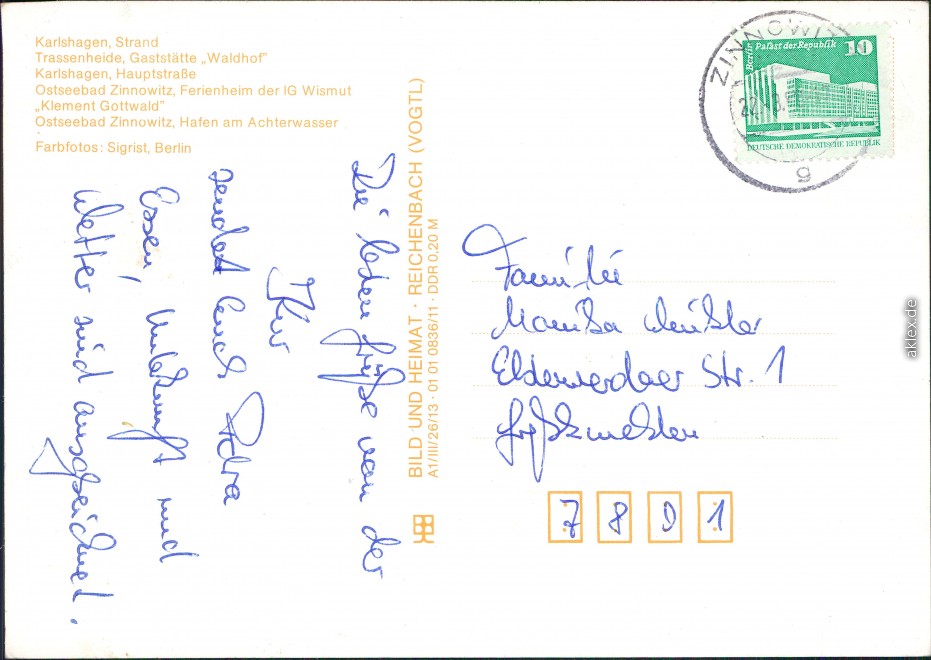 Karlshagen, Strand
Trassenheide, Gaststätte „Waldhof"
Karlshagen, Hauptstraße
Ostseebad Zinnowitz, Ferienheim der IG Wismut
„Klement Gottwald"
Ostseebad Zinnowitz, Hafen am Achterwasser
Farbfotos: Sigrist, Berlin
Die lieben Grüße von der
Kur
sendet Euch Petra
Essen, Unterkunft und
Wetter sind ausgezeichnet.
BILD UND HEIMAT · REICHENBACH (VOGTL)
A1/III/26/13 · 01 01 0836/11 · DDR 0,20 M
ZINNOWITZ
g
Berlin Palast der Republik 10
DEUTSCHE DEMOKRATISCHE REPUBLIK
Familie
Elsterwerdaer Str. 1
7801
aklex.de